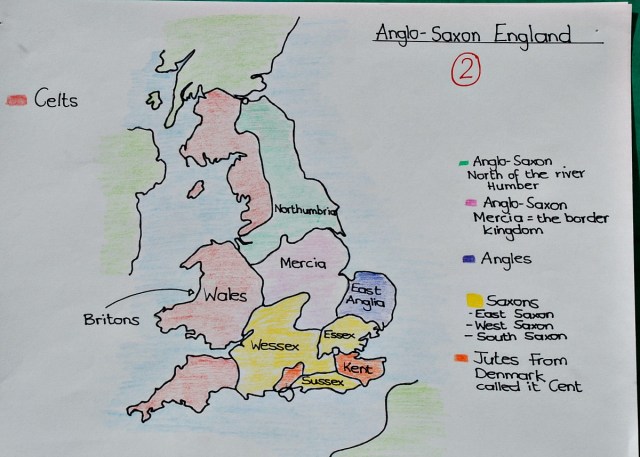 Anglo-Saxon England
2
Celts
Anglo-Saxon
North of the river
Humber
Anglo-Saxon
Mercia = the border
kingdom
Angles
Saxons
- East Saxon
- West Saxon
- South Saxon
Jutes From
Denmark
called it Cent
Northumbria
Mercia
East
Anglia
Wales
Britons
Essex
Wessex
Kent
Sussex